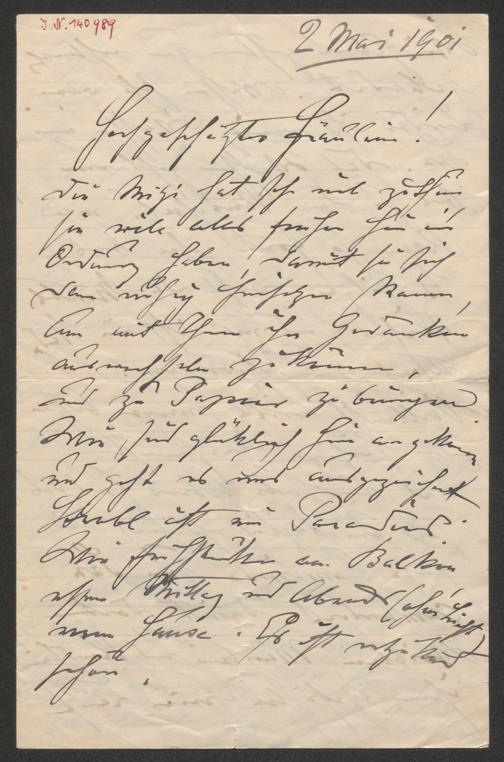 J. N. 140989
2 Mai 1901
Hochgeschätztes Fräulein!
Die Mizi hat sehr viel zu thun
sie will alles früher hier in
Ordnung haben, damit sie sich
dann ruhig hinsetzen kann,
um mit Ihnen ihre Gedanken
auswechseln zu können,
und zu Papier zu bringen
Wir sind glücklich hier angekommen
und geht es uns ausgezeichnet
ist ein Paradies.
Wir frühstücken am Balkon
essen Mittag und Abends
vorm Hause. Es ist entzückend
schön.